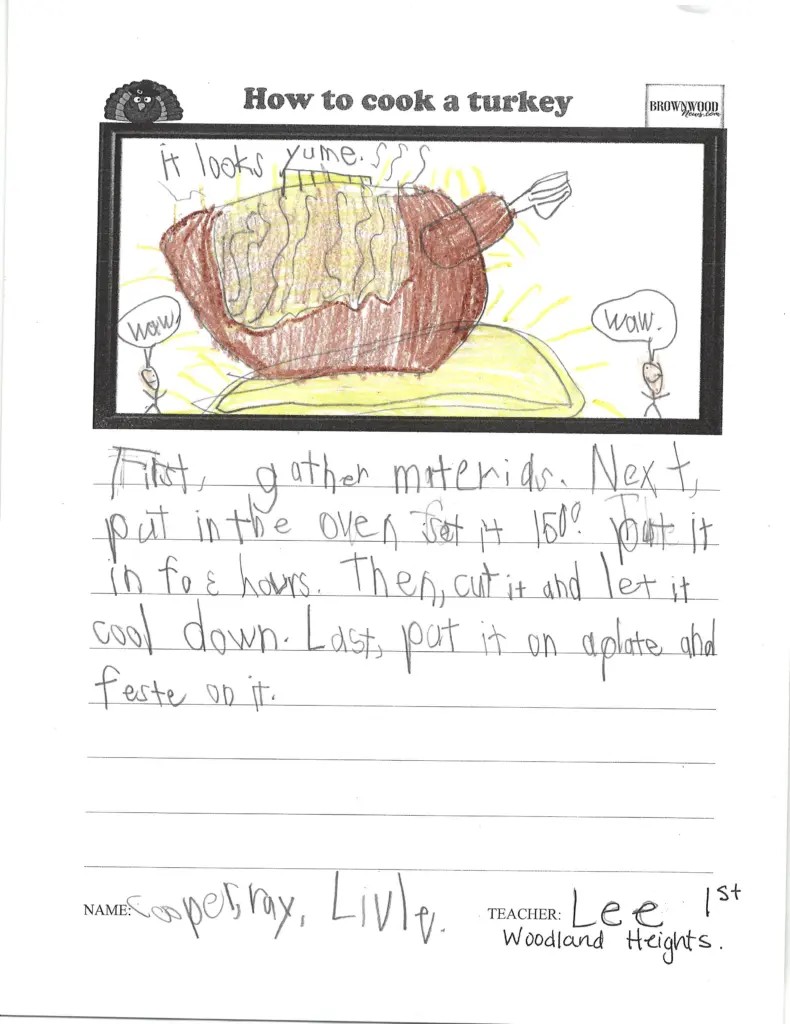 How to cook a turkey
BROWNWOOD
News.com
it looks yume.
waw.
waw.
First, gather materids. Next,
put in the oven Set it 150° Put it
in fo hours. Then, cut it and let it
cool down. Last, put it on a plate and
feste on it.
NAME: Cooper, ray,
TEACHER: Lee 1st
Woodland Heights.